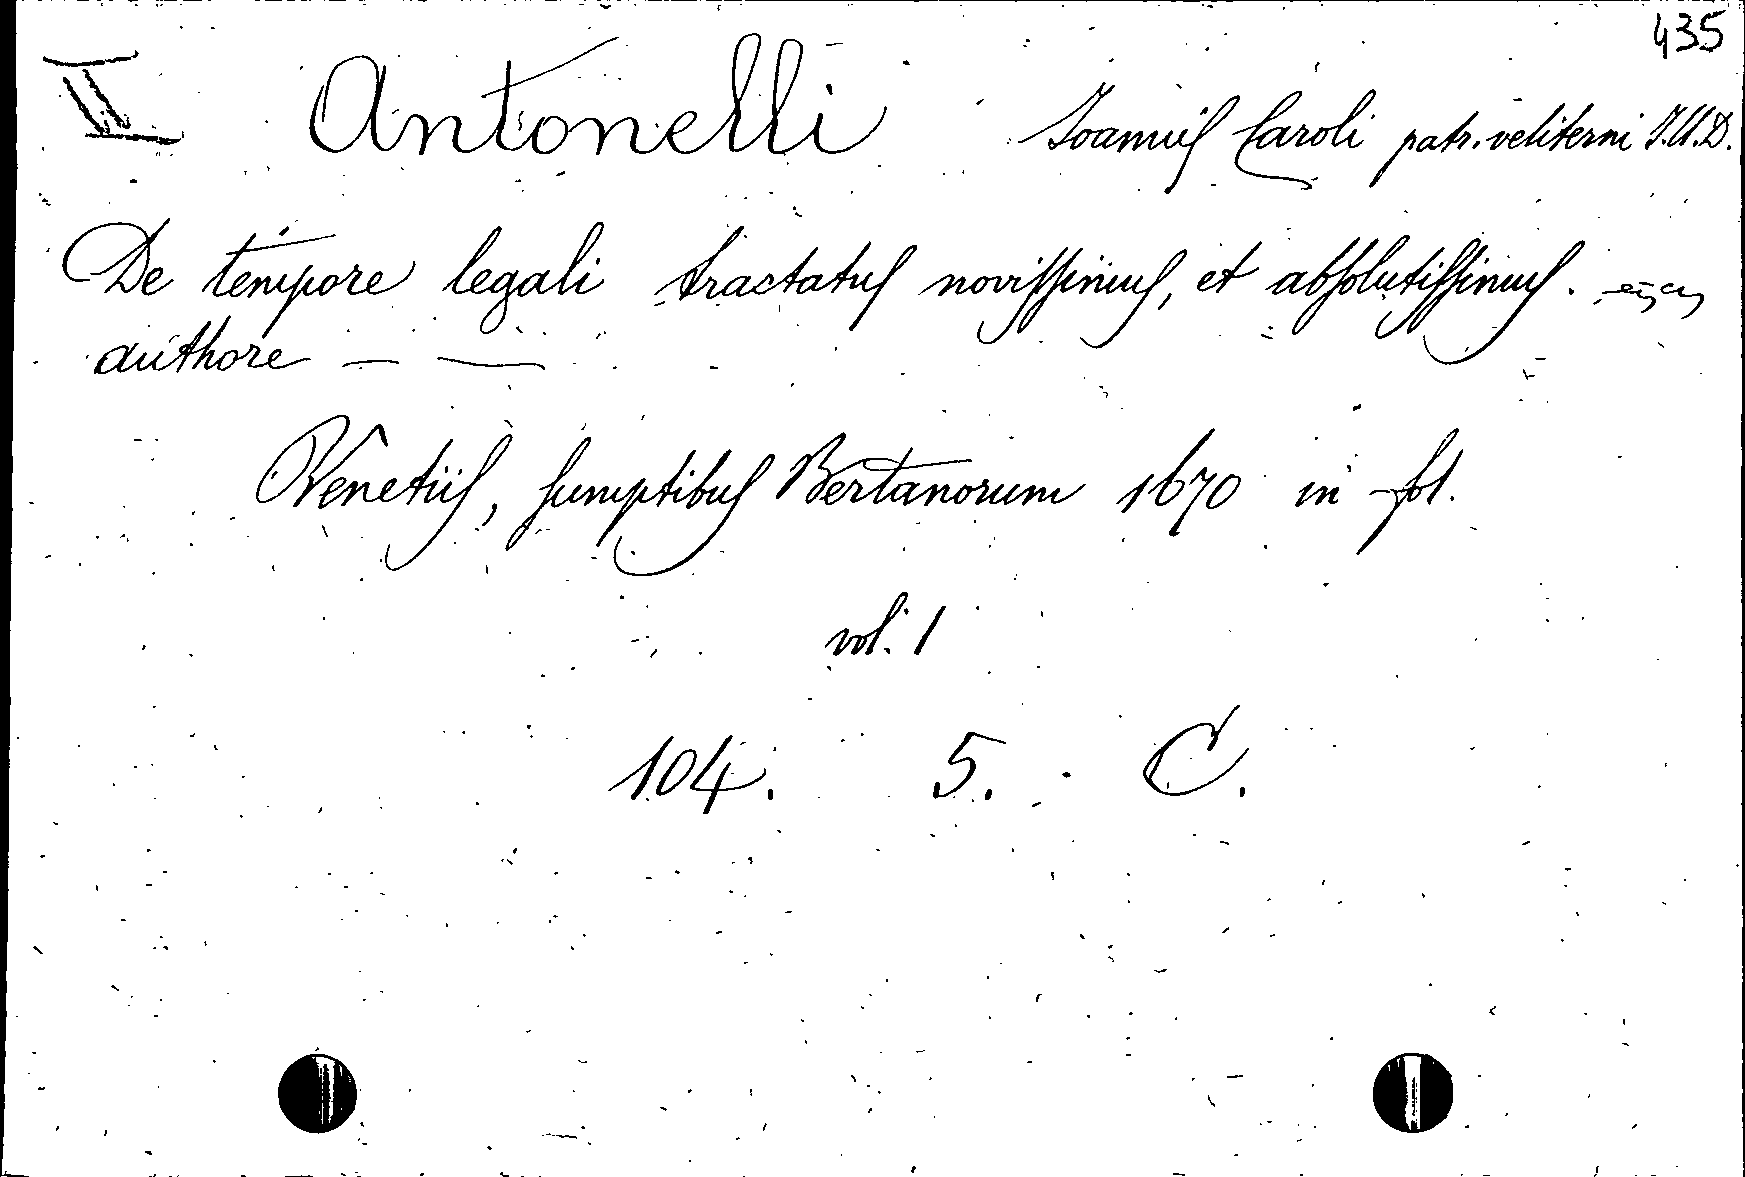 435
II Antonelli Joannis Caroli patr. veliterni J.U.D.
De tempore legali tractatus novissimus, et absolutissimus.
authore — —
Venetiis, sumptibus Bertanorum 1670 in-fol.
vol. 1
104. 5. C.